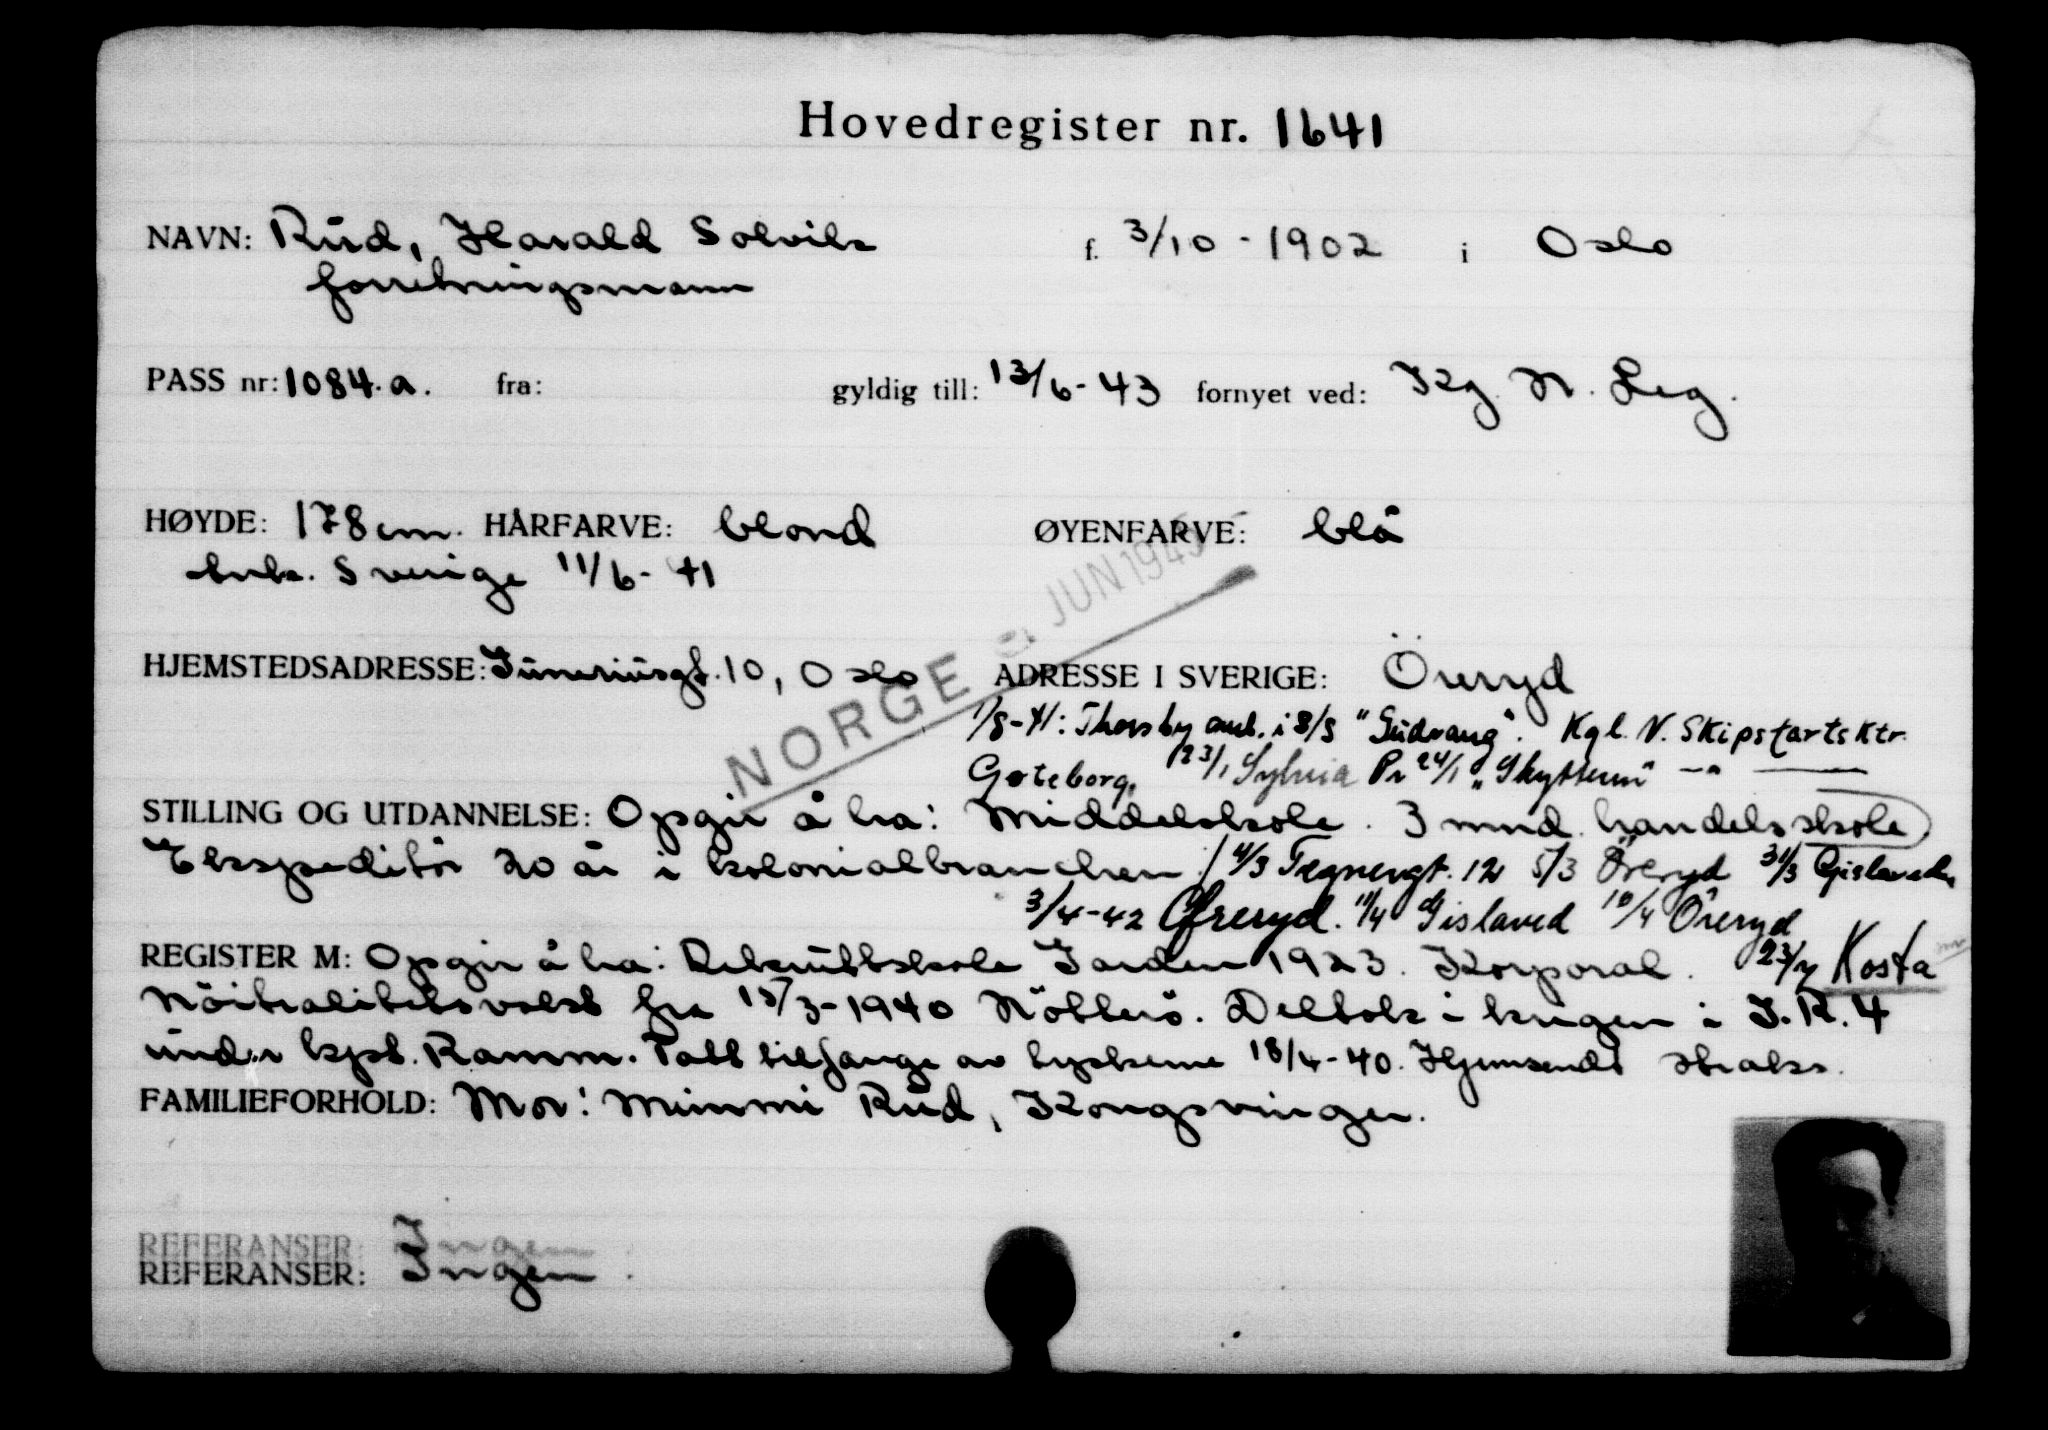 Hovedregister nr. 1641
NAVN: Rud, Harald Solvik f. 3/10-1902 i Oslo
forretningsmann
PASS nr: 1084.a. fra: gyldig till: 13/6-43 fornyet ved: Kg. N. Leg.
HØYDE: 178 cm. HÅRFARVE: blond ØYENFARVE: blå
ank. Sverige 11/6-41
JUN 1945
NORGE
HJEMSTEDSADRESSE: Suneriusgt. 10, Oslo ADRESSE I SVERIGE: Öreryd
1/8-41: Thorsby ank. i 8/8 "Gudvang". Kgl. N. Skipsfartsktr.
Gøteborg, 23/1 Sylvia Pr 24/1 "Skytteren" —"—
STILLING OG UTDANNELSE: Opgir å ha: Middelskole. 3 mnd. handelsskole
Ekspeditør 20 år i kolonialbranchen. 4/3 Tegnergt. 12 5/3 Öreryd 31/3 Gislaved
3/4-42 Öreryd. 11/4 Gislaved 10/4 Öreryd
REGISTER M: Opgir å ha: Rekruttskole Jorden 1923. Korporal. 23/7 Kosta
Nöitralitetsvakt fra 15/3-1940 Nötterö. Deltok i krigen i I.R. 4
under kpt. Ramm. Tatt tilfange av tyskerne 18/4-40. Hjemsendt straks.
FAMILIEFORHOLD: Mor: Mimmi Rud, Kongsvinger.
REFERANSER: Ingen
REFERANSER: Ingen.